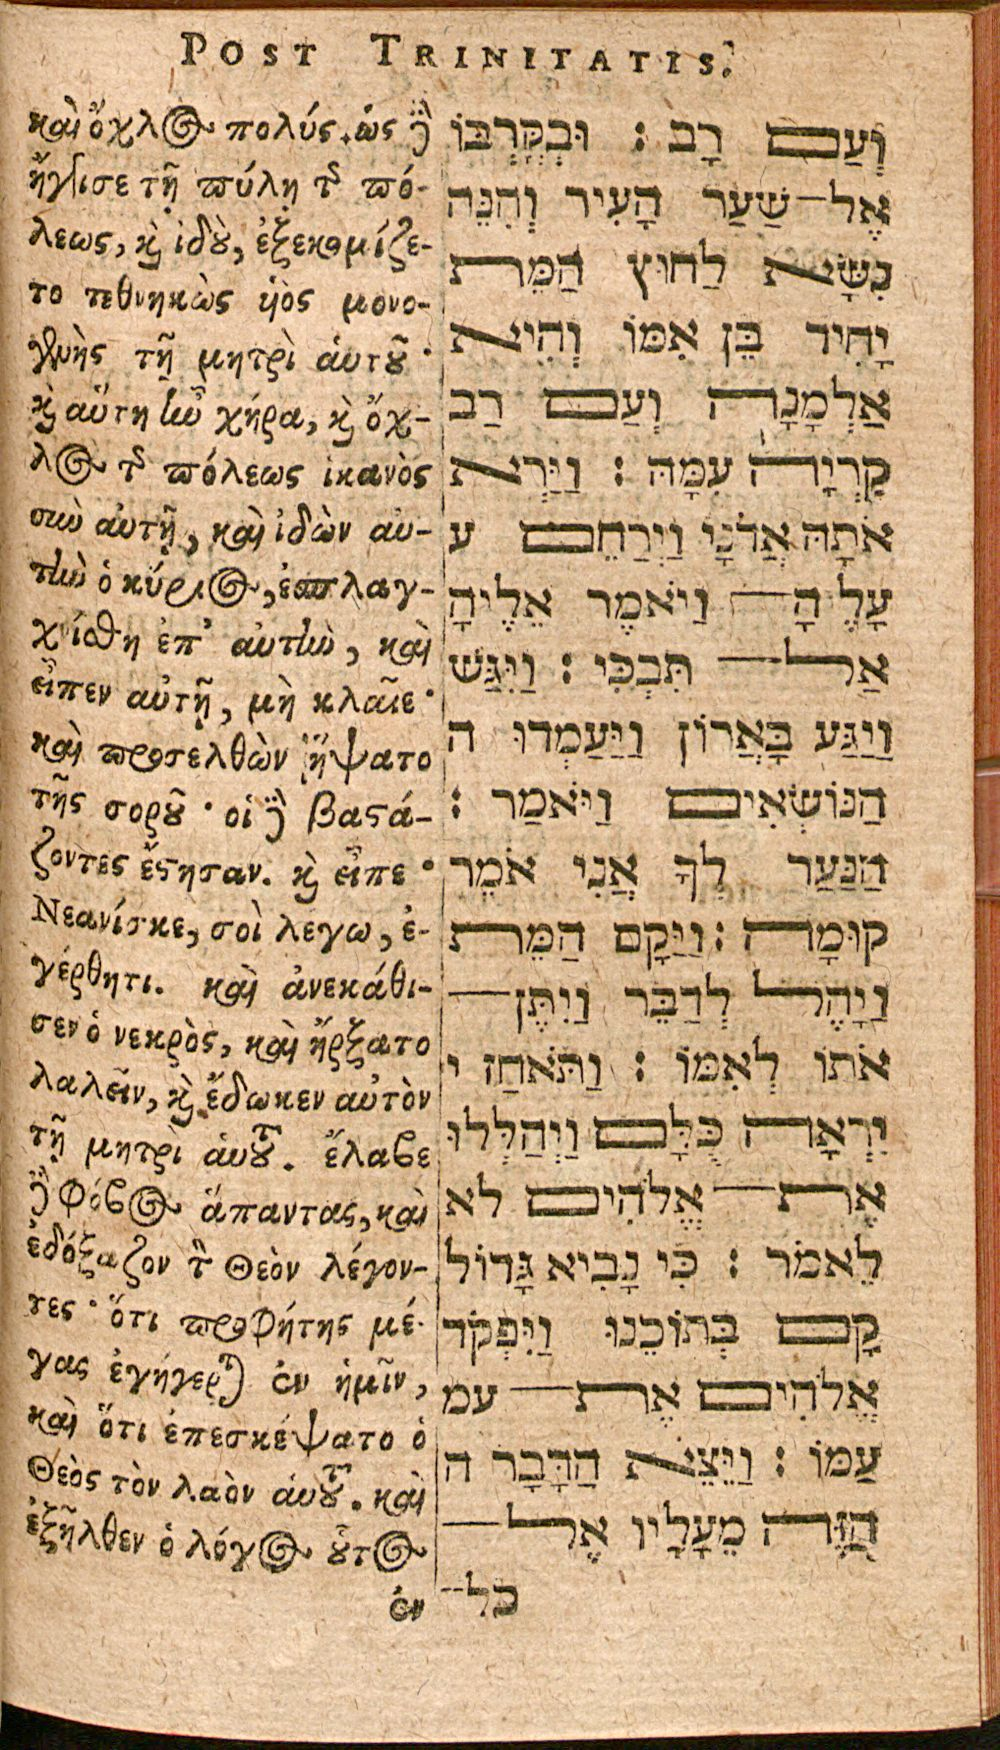 POST TRINITATIS.
καὶ ὄχλος πολύς. ὡς δὲ
ἤγγισε τῇ πύλῃ τῆς πό-
λεως, καὶ ἰδοὺ, ἐξεκομίζε-
το τεθνηκὼς υἱὸς μονο-
γενὴς τῇ μητρὶ ἁυτοῦ·
καὶ αὕτη ἦν χήρα, καὶ ὄχ-
λος τῆς πόλεως ἱκανὸς
σὺν αὐτῇ, καὶ ἰδὼν αὐ-
τὴν ὁ κύριος, ἐσπλαγ-
χνίσθη ἐπ' αὐτὴν, καὶ
εἶπεν αὐτῇ, μὴ κλαῖε·
καὶ προσελθὼν ἥψατο
τῆς σοροῦ· οἱ δὲ βαστά-
ζοντες ἔστησαν. καὶ εἶπε·
Νεανίσκε, σοὶ λέγω, ἐ-
γέρθητι. καὶ ἀνεκάθι-
σεν ὁ νεκρὸς, καὶ ἤρξατο
λαλεῖν, καὶ ἔδωκεν αὐτὸν
τῇ μητρὶ ἁυτοῦ. ἔλαβε
δὲ φόβος ἅπαντας, καὶ
ἐδόξαζον τὸν Θεὸν λέγον-
τες· ὅτι προφήτης μέ-
γας ἐγήγερται ἐν ἡμῖν,
καὶ ὅτι ἐπεσκέψατο ὁ
Θεὸς τὸν λαὸν ἁυτοῦ. καὶ
ἐξῆλθεν ὁ λόγος οὗτος
ἐν
וְעַם רָב : וּבְקָרְבּוֹ
אֶל־שַׁעַר הָעִיר וְהִנֵּה
נִשָּׂא לַחוּץ הַמֵּת
יָחִיד בֵּן אִמּוֹ וְהִיא
אַלְמָנָה וְעַם רַב
קִרְיָה עִמָּהּ : וַיַּרְא
אֹתָהּ אֲדֹנָי וַיְרַחֵם ע
עָלֶהָ־ וַיֹּאמֶר אֵלֶיהָ
אַל־ תִּבְכִּי : וַיִּגַּשׁ
וַיִּגַּע בָּאֲרוֹן וַיַּעַמְדוּ ה
הַנּוֹשְׂאִים וַיֹּאמַר :
הַנַּעַר לְךָ אֲנִי אֹמֵר
קוּמָה : וַיָּקָם הַמֵּת
וַיָּהֶל לְדַבֵּר וַיִּתֶּן־
אֹתוֹ לְאִמּוֹ : וַתֹּאחַז י
יִרְאָה כֻּלָּם וַיְהַלְּלוּ
אֶת־ אֱלֹהִים לא
לֵאמֹר : כִּי נָבִיא גָּדוֹל
קָם בְּתוֹכֵנוּ וַיִּפְקֹד
אֱלֹהִים אֶת־ עמ
עַמּוֹ : וַיֵּצֵא הַדָּבָר ה
הַזֶּה מֵעָלָיו אֶל־
כל־